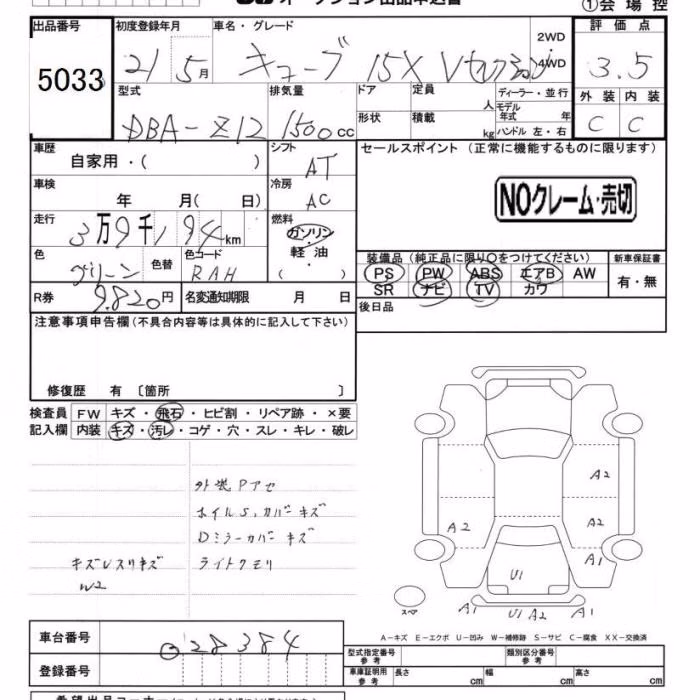 オークション出品申込書
①会場控
出品番号
5033
初度登録年月
21 5月
車名・グレード
キューブ 15X Vセレクション
2WD
4WD
評価点
3.5
型式
DBA-Z12
排気量
1500cc
ドア
定員
人
形状
積載
kg
ディーラー・並行
モデル年式 年
ハンドル 左・右
外装 内装
C C
車歴
自家用・( )
シフト
AT
セールスポイント (正常に機能するものに限ります)
NOクレーム・売切
車検
年 月( 日)
冷房
AC
走行
3万9千194km
燃料
ガソリン
軽油
( )
色
グリーン
色替
色コード
RAH
装備品 (純正品に限り○をつけてください)
PS PW ABS エアB AW
SR ナビ TV カワ
新車保証書
有・無
R券
9,820円
名変通知期限 月 日
後日品
注意事項申告欄(不具合内容等は具体的に記入して下さい)
修復歴 有 〔箇所 〕
検査員 FW キズ・飛石・ヒビ割・リペア跡・×要
記入欄 内装 キズ・汚レ・コゲ・穴・スレ・キレ・破レ
外装Pアセ
ホイルS,カバーキズ
Dミラーカバーキズ
キズUスリキズ
ライトクモリ
W2
A2
A2
A2
A1
U1
スペア
A1
U1 A2
A1
A－キズ E－エクボ U－凹み W－補修跡 S－サビ C－腐食 XX－交換済
車台番号
028384
登録番号
型式指定番号
参考
類別区分番号
参考
車庫証明用
参考
長さ cm
幅 cm
高さ cm
希望出品コーナー